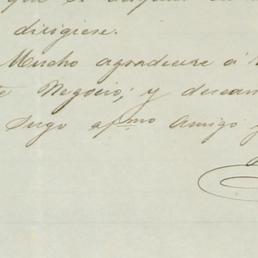 dirigiese.
Mucho agradeceré á
Negocio; y desean
Sugo afmo Amigo y